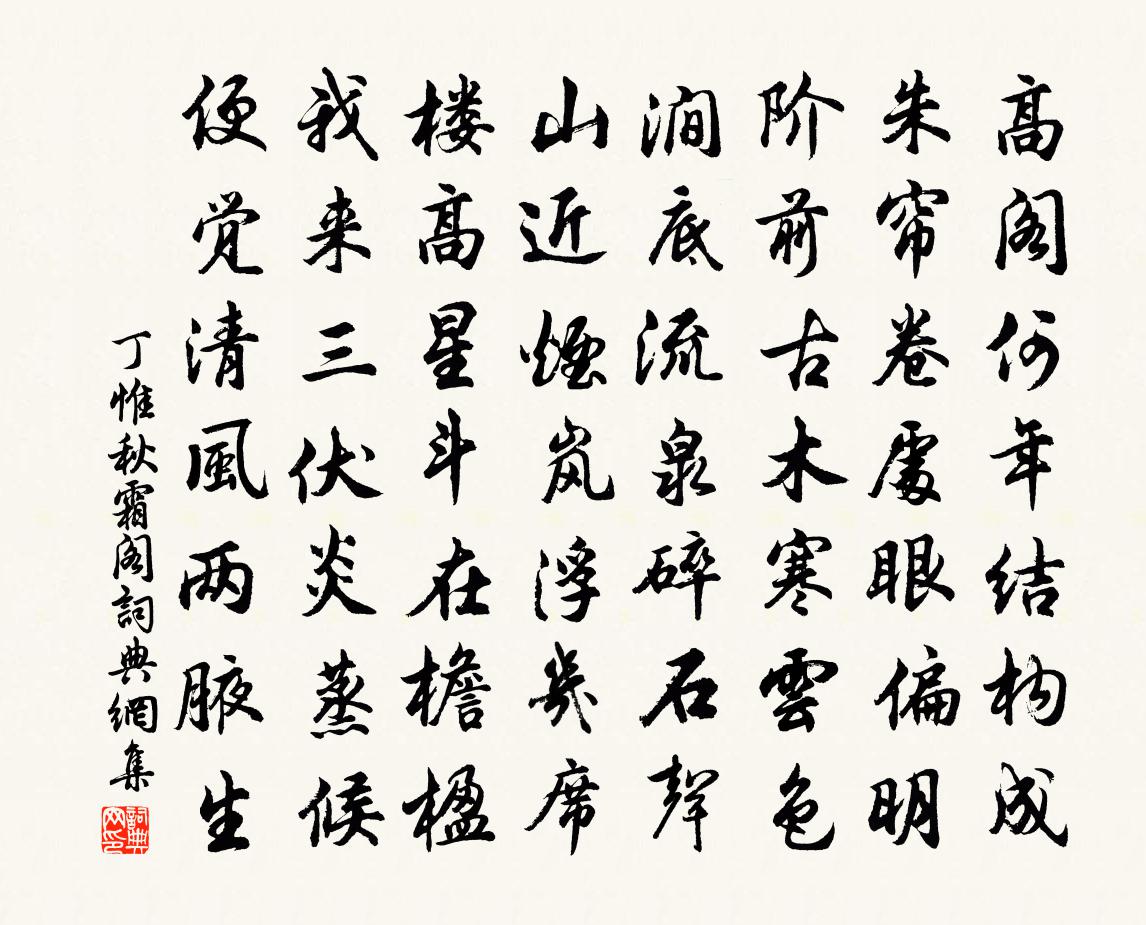 高阁何年结构成
朱帘卷处眼偏明
阶前古木寒雲色
涧底流泉碎石声
山近烟岚浮几席
楼高星斗在檐楹
我来三伏炎蒸候
便觉清風两腋生
丁惟秋霜阁詞典網集
詞典网印